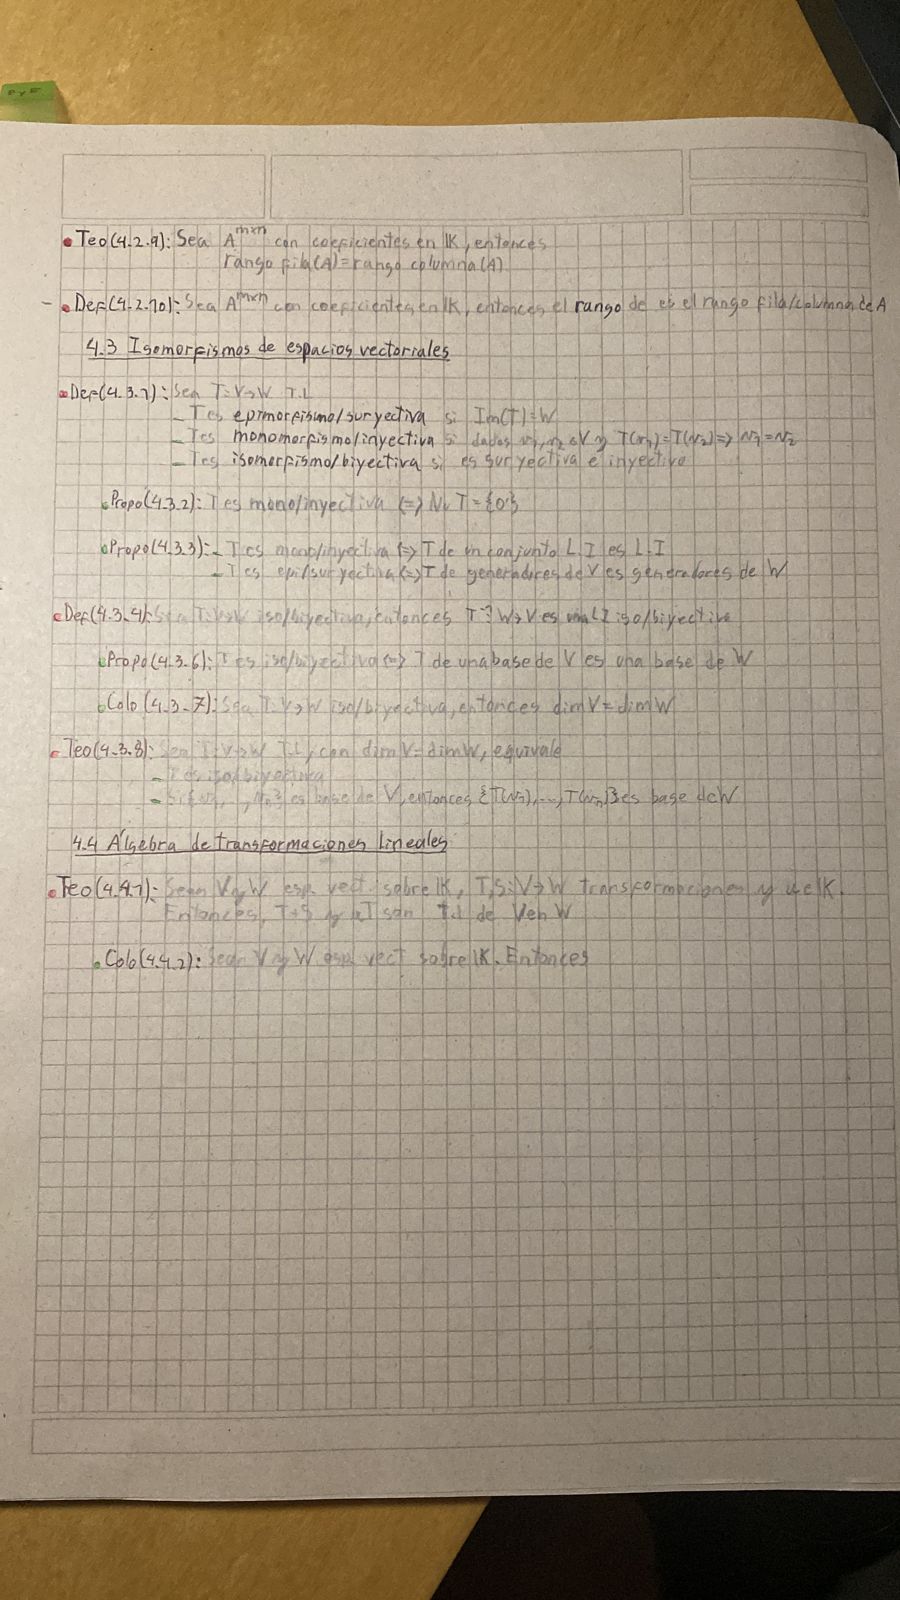 P y E
• Teo(4.2.9): Sea A^mxn con coeficientes en IK, entonces
rango fila(A)=rango columna(A)
- • Def(4.2.10): Sea A^mxn con coeficientes en IK, entonces el rango de es el rango fila/columna de A
4.3 Isomorfismos de espacios vectoriales
• Def(4.3.1): Sea T:V→W T.L
- T es epimorfismo/suryectiva si Im(T)=W
- T es monomorfismo/inyectiva si dados v₁,v₂ ∈V y T(v₁)=T(v₂)=> v₁=v₂
- T es isomorfismo/biyectiva si es suryectiva e inyectiva
• Propo(4.3.2): T es mono/inyectiva <=> Nu T={0}
• Propo(4.3.3): - T es mono/inyectiva <=> T de un conjunto L.I es L.I
- T es epi/suryectiva <=> T de generadores de V es generadores de W
• Def(4.3.4): Sea T:V→W iso/biyectiva, entonces T⁻¹:W→V es una iso/biyectiva
• Propo(4.3.6): T es iso/biyectiva <=> T de una base de V es una base de W
• Colo(4.3.7): Sea T:V→W iso/biyectiva, entonces dimV=dimW
• Teo(4.3.8): Sea T:V→W T.L, con dimV=dimW, equivale
- T es iso/biyectiva
- Si {v₁,...,vₙ} es base de V, entonces {T(v₁),...,T(vₙ)} es base de W
4.4 Álgebra de transformaciones lineales
• Teo(4.4.1): Sean V y W esp. vect. sobre IK, T,S:V→W transformaciones y IK.
Entonces, T+S y T son T.L de V en W
• Colo(4.4.2): Sean V y W esp. vect sobre IK. Entonces